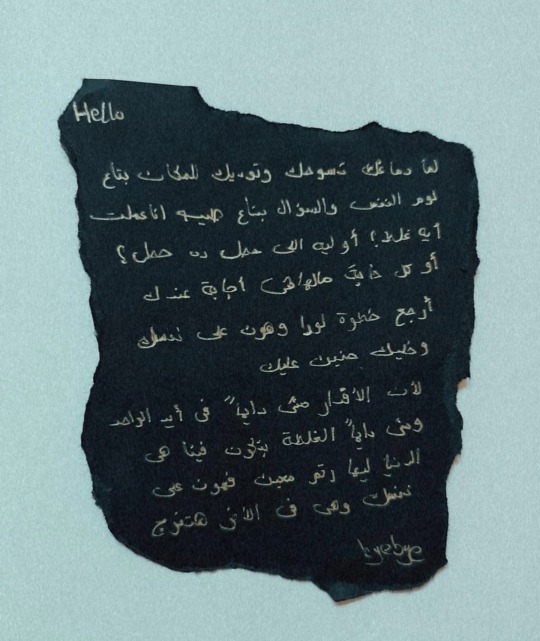 Hello
لما دماغك تسوحك وتوديك للمكان بتاع
لوم النفس والسؤال بتاع طيب انا عملت
أيه غلط؟ أو ليه اللى حصل ده حصل؟
أو كل حاجة مالهاش أجابة عندك
أرجع خطوة لورا وهون على نفسك
وخليك حنين عليك
لأن الأقدار مش دايماً فى أيد الواحد
ومش دايماً الغلطة بتكون فينا هى
الدنيا ليها رتم معين فهون على
نفسك وهى فى الأخر هتفرج
byebye